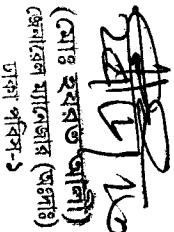 (মোঃ হযরত আলী)
জেনারেল ম্যানেজার (অঃদাঃ)
ঢাকা পবিস-১